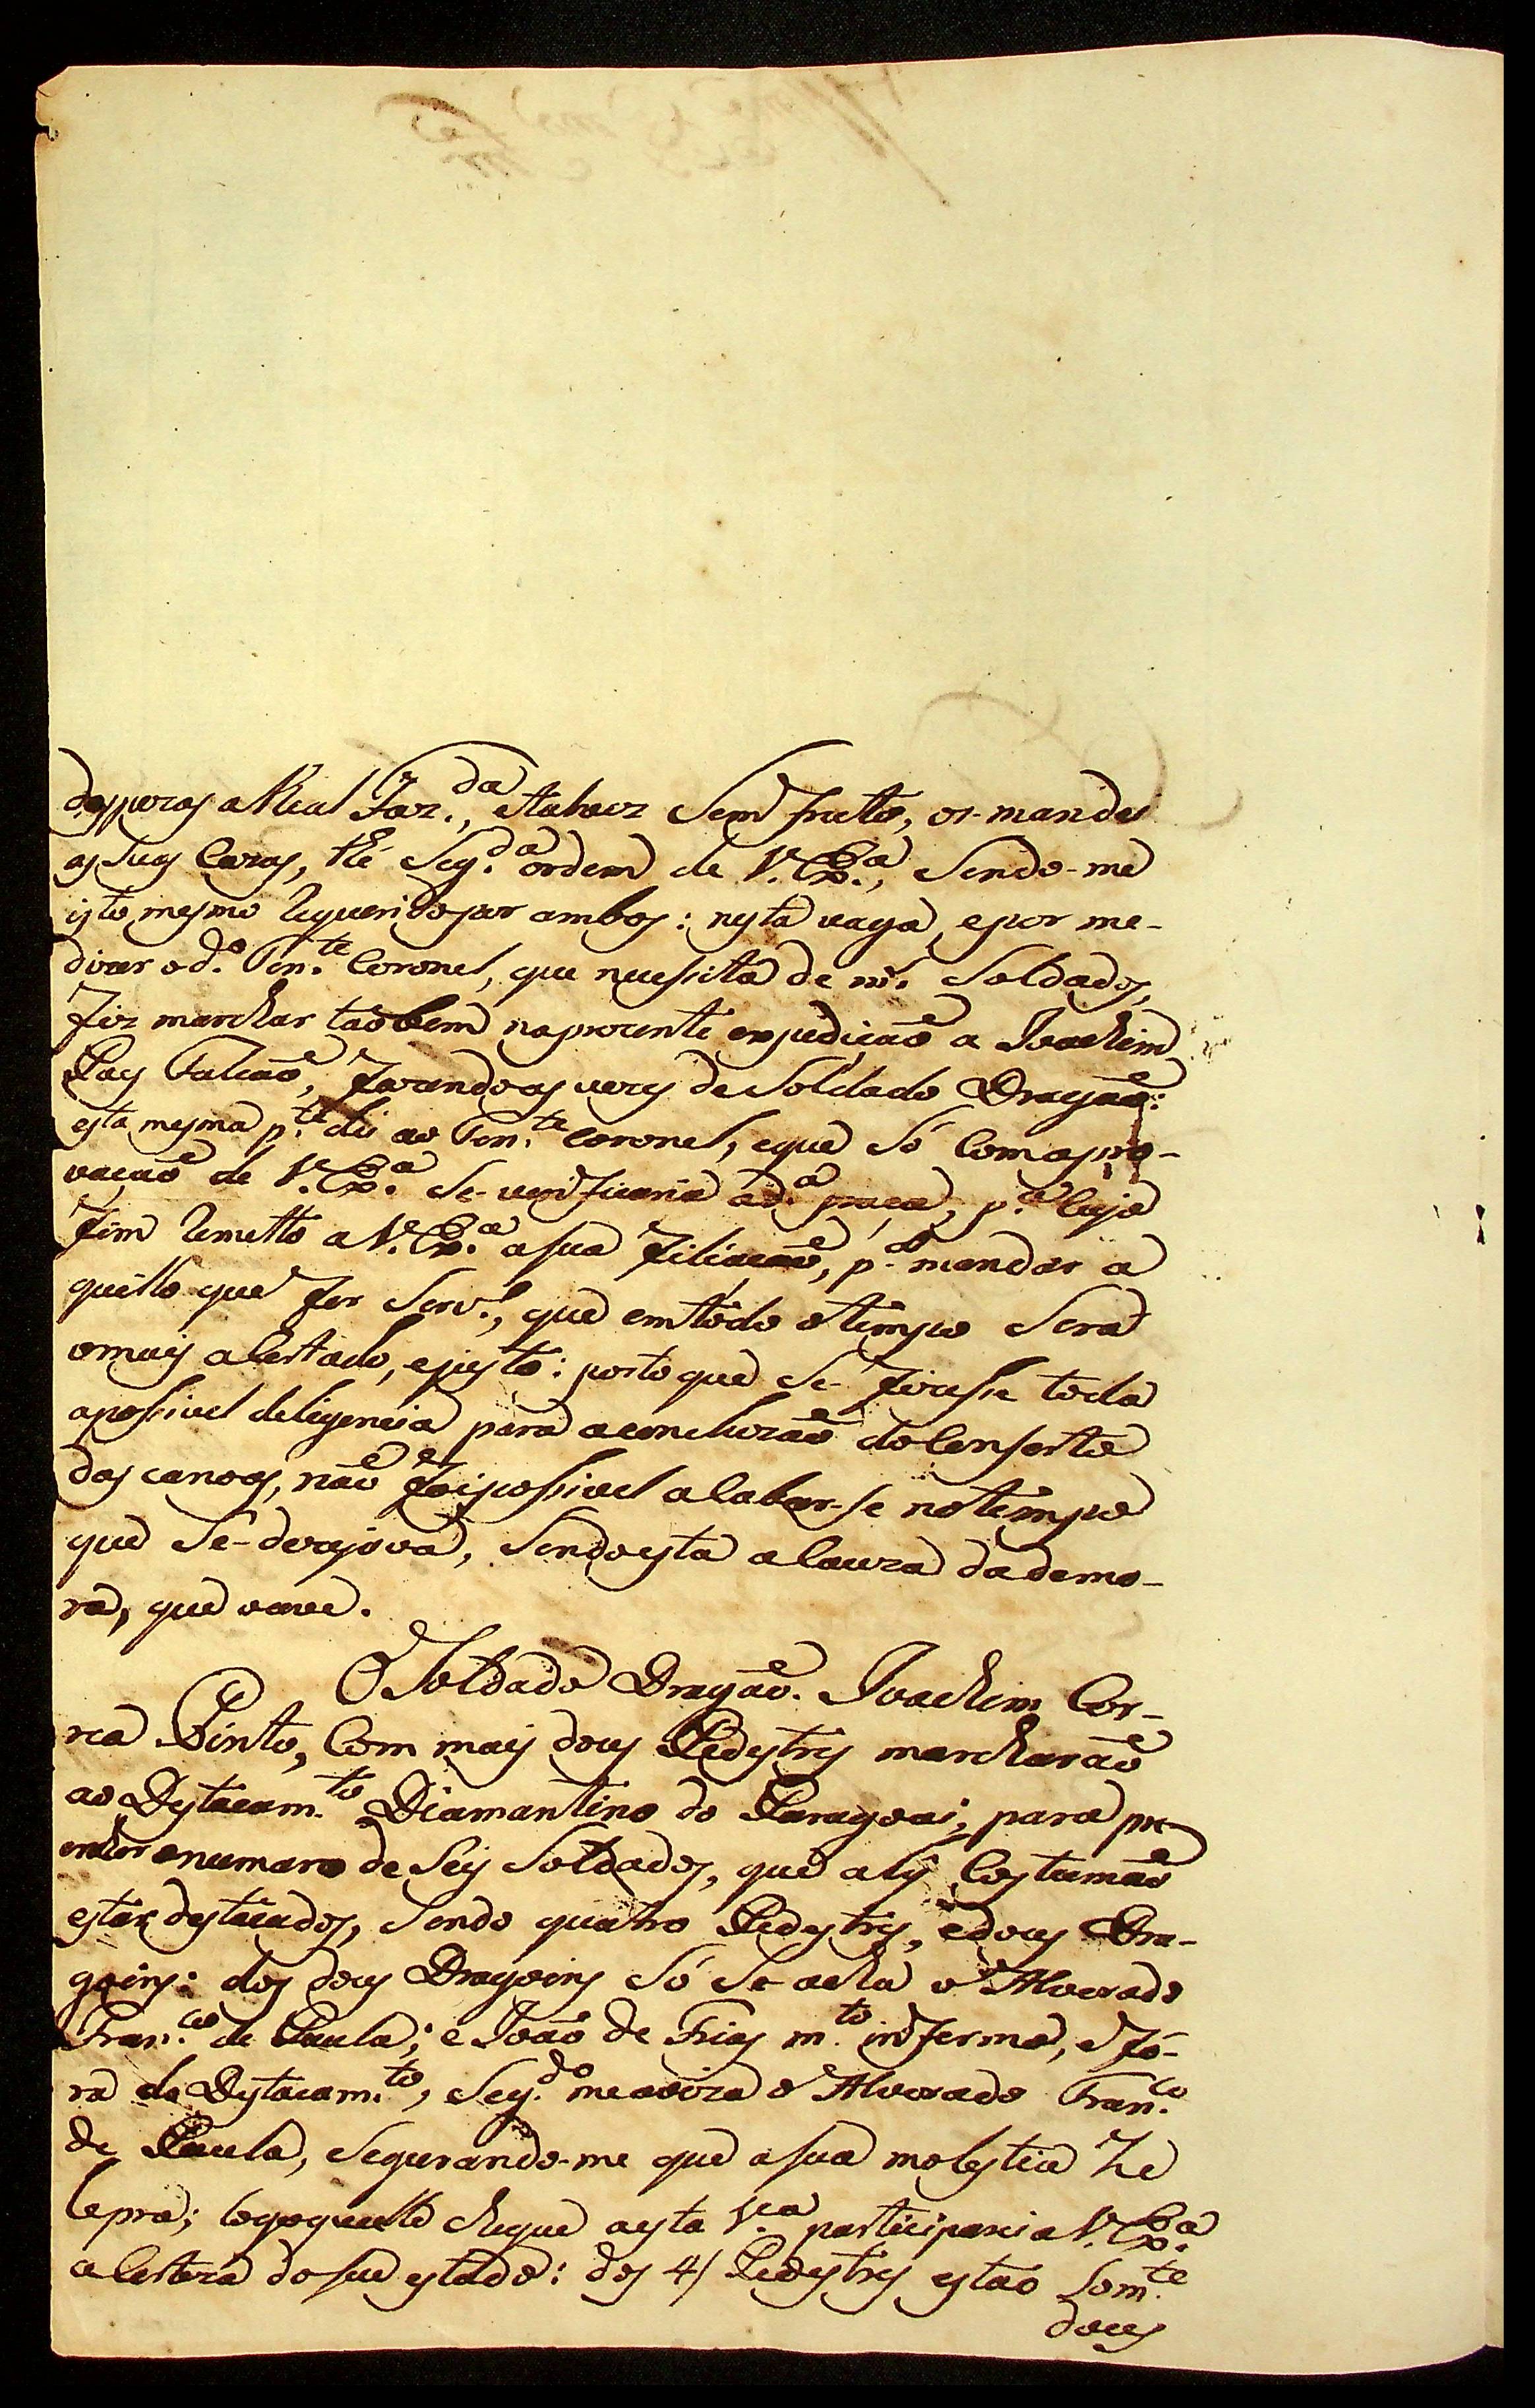 despezas a Real Faz.da, etalvez Sem fructo, os-mandei
as Suas Cazas, thé Seg.da ordem de V. Ex.a, Sendo-me
isto mesmo Requerido por ambos: nesta vaga, epor me-
dizer o d.o Ten.te Coronel, que necessita de m.s Soldados,
fiz marchar taõbem naprezente expediçaõ a Joachim
Paes Falcaõ, fazendo as vezes de Soldado Dragaõ:
esta mesma p.te dei ao Ten.te coronel, eque Só Com apro-
vaçaõ de V. Ex.a Se-verificaria ad.a praça, p.a Cujo
fim Remetto a V. Ex.a asua filiaçaõ, p.a mandar a
quillo que for Serv.o, que em todo otempo Será
omais aCertado, ejusto: posto que Se-fizesse toda
apossivel deligencia para aconcluzaõ do Conserto
das canoas, naõ foi possivel aCabar-se no tempo
que Se-dezejava, Sendo esta aCauza da demo-
ra, que ouve.
O Soldado Dragaõ Joachim Cor-
rea Pinto, Com mais dous Pedestres marcharaõ
ao Destacam.to Diamantino do Paragoai; para pre-
encher onumaro de Seis Soldados, que aly Costumaõ
estar destacados, Sendo quatro Pedestres, edous Dra-
goins: dos dous Dragoins Só Se acha o Alverado
Fran.co de Paula; e Joaõ de Frias m.to infermo, e fó-
ra do Destacam.to, Seg.do meaviza o Alverado Fran.co
de Paula, Segurando-me que asua molestia he
lepra; logo que elle chegue aesta V.a participarei a V. Ex.a
aCerteza do seu estado: dos 4/ Pedestres estaõ Som.te
dous